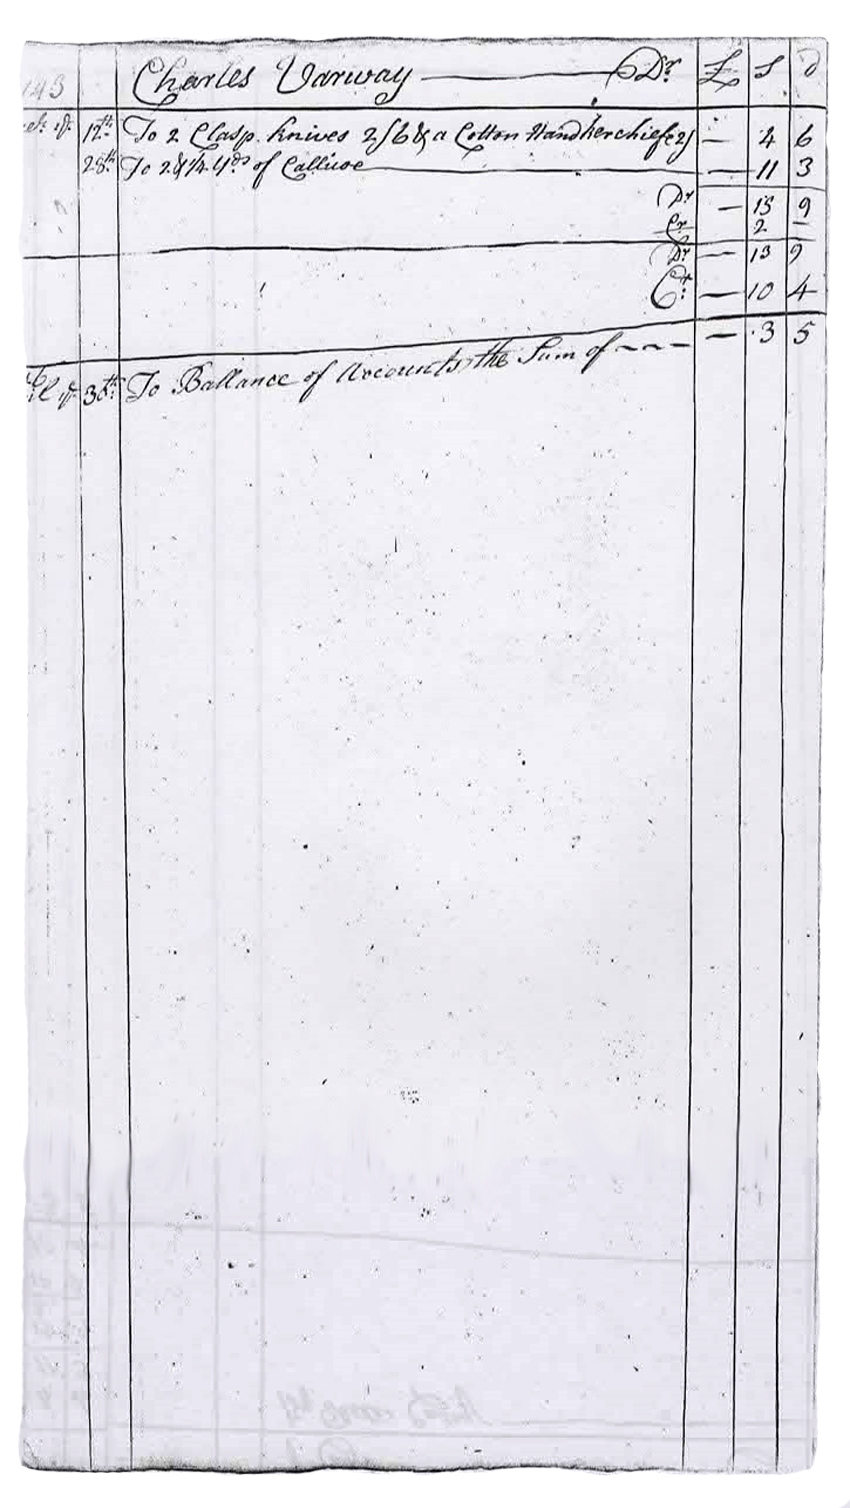 143 Charles Varway Dr £ s d
ch ye 12th To 2 Clasp knives 2/6 & a Cotton Handkerchief 2/ — 4 6
28th To 2 & 1/4 yds of Callicoe — 11 3
Dr — 15 9
Cr 2 —
Dr — 13 9
Ct — 10 4
— 3 5
il ye 30th To Ballance of Accounts the Sum of